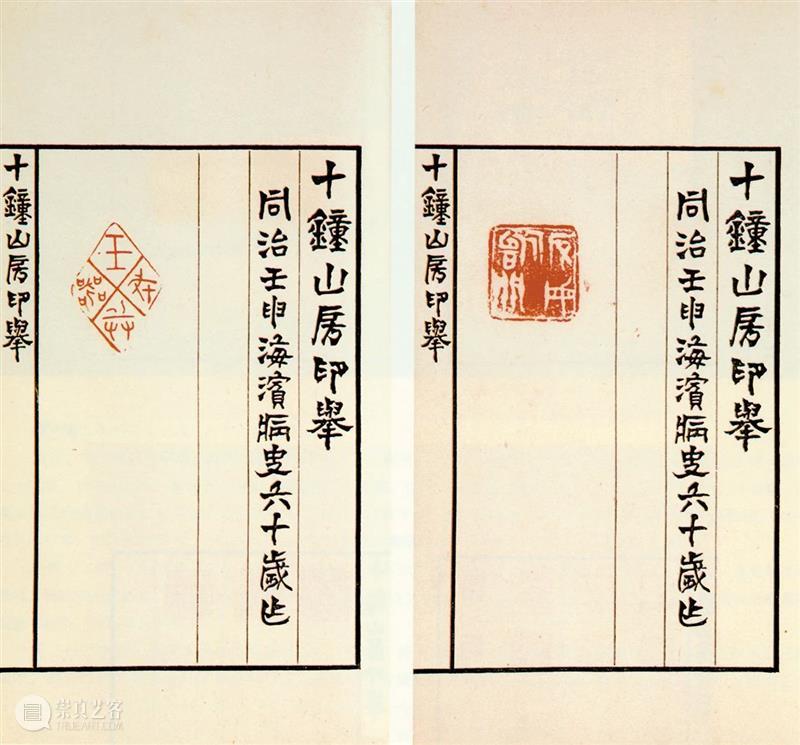 十鐘山房印舉
同治壬申海濱病史六十歲作
十鐘山房印舉
十鐘山房印舉
同治壬申海濱病史六十歲作
十鐘山房印舉
崇真艺客
TRUEART.COM